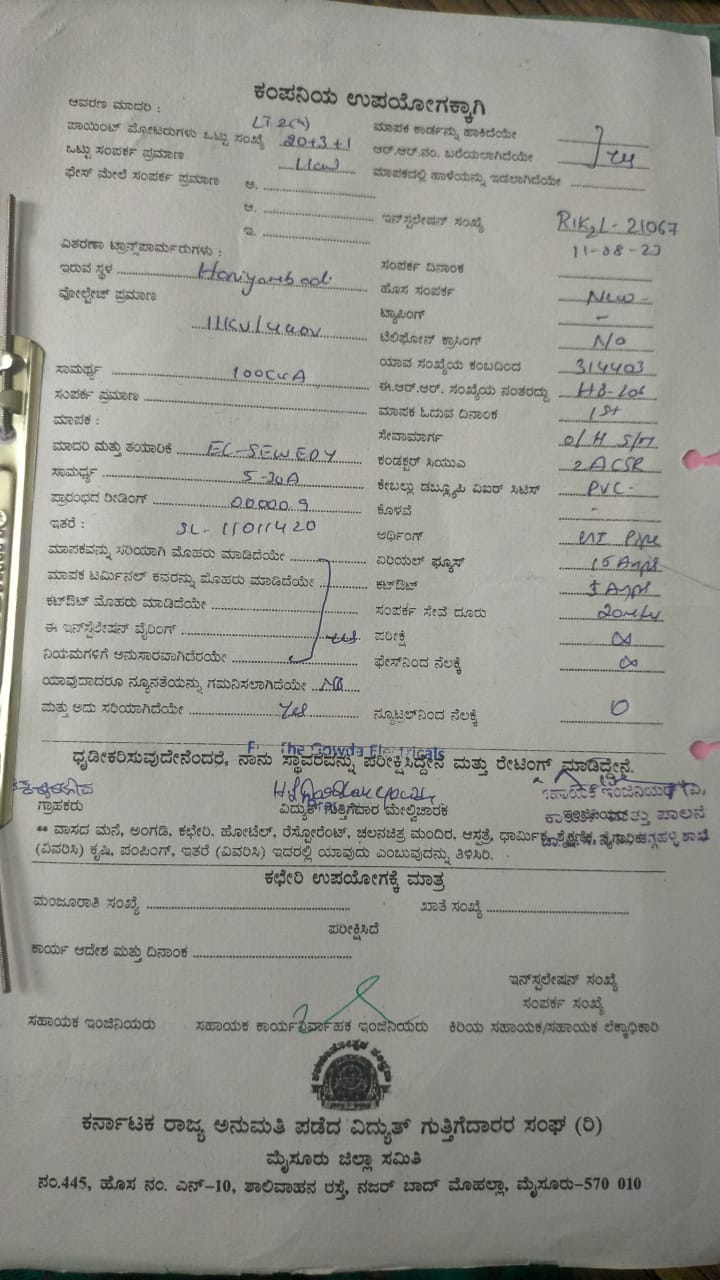 ಕಂಪನಿಯ ಉಪಯೋಗಕ್ಕಾಗಿ
ಆವರಣ ಮಾದರಿ :
ಪಾಯಿಂಟ್ ಮೋಟರುಗಳು ಒಟ್ಟು ಸಂಖ್ಯೆ 20+3+1 ಮಾಪಕ ಕಾರ್ಡನ್ನು ಹಾಕಿದೆಯೇ
ಒಟ್ಟು ಸಂಪರ್ಕ ಪ್ರಮಾಣ ಆರ್.ಆರ್.ನಂ. ಬರೆಯಲಾಗಿದೆಯೇ
ಫೇಸ್ ಮೇಲೆ ಸಂಪರ್ಕ ಪ್ರಮಾಣ ಅ. ಮಾಪಕದಲ್ಲಿ ಹಾಳೆಯನ್ನು ಇಡಲಾಗಿದೆಯೇ
ಆ. ಇನ್‌ಸ್ಟಲೇಷನ್ ಸಂಖ್ಯೆ 21067
ಇ.
ವಿತರಣಾ ಟ್ರಾನ್ಸ್‌ಪಾರ್ಮರುಗಳು : ಸಂಪರ್ಕ ದಿನಾಂಕ
ಇರುವ ಸ್ಥಳ ಹೊಸ ಸಂಪರ್ಕ New
ವೋಲ್ಟೇಜ್ ಪ್ರಮಾಣ 11KV/440V ಟ್ಯಾಪಿಂಗ್ -
ಟೆಲಿಫೋನ್ ಕ್ರಾಸಿಂಗ್ No
ಸಾಮರ್ಥ್ಯ ಯಾವ ಸಂಖ್ಯೆಯ ಕಂಬದಿಂದ 314403
ಸಂಪರ್ಕ ಪ್ರಮಾಣ ಈ.ಆರ್.ಆರ್. ಸಂಖ್ಯೆಯ ನಂತರದ್ದು HB-206
ಮಾಪಕ : ಮಾಪಕ ಓದುವ ದಿನಾಂಕ 1st
ಮಾದರಿ ಮತ್ತು ತಯಾರಿಕೆ EL-SEWEDY ಸೇವಾಮಾರ್ಗ O/H
ಸಾಮರ್ಥ್ಯ 5-30A ಕಂಡಕ್ಟರ್ ಸಿಯುಎ 2 ACSR
ಪ್ರಾರಂಭದ ರೀಡಿಂಗ್ 00000.9 ಕೇಬಲ್ಲು ಡಬ್ಲ್ಯೂಪಿ ವಿಐರ್ ಸಿಟಿಸ್ PVC -
ಇತರೆ : SL-11011420 ಕೊಳವೆ -
ಮಾಪಕವನ್ನು ಸರಿಯಾಗಿ ಮೊಹರು ಮಾಡಿದೆಯೇ ಅರ್ಥಿಂಗ್ Pipe
ಮಾಪಕ ಟರ್ಮಿನಲ್ ಕವರನ್ನು ಮೊಹರು ಮಾಡಿದೆಯೇ ಏರಿಯಲ್ ಫ್ಯೂಸ್
ಕಟ್‌ಔಟ್ ಮೊಹರು ಮಾಡಿದೆಯೇ ಕಟ್‌ಔಟ್
ಈ ಇನ್‌ಸ್ಟಲೇಷನ್ ವೈರಿಂಗ್ yes ಸಂಪರ್ಕ ಸೇವೆ ದೂರು
ನಿಯಮಗಳಿಗೆ ಅನುಸಾರವಾಗಿದೆರಯೇ ಪರೀಕ್ಷೆ ∞
ಯಾವುದಾದರೂ ನ್ಯೂನತೆಯನ್ನು ಗಮನಿಸಲಾಗಿದೆಯೇ No ಫೇಸ್‌ನಿಂದ ನೆಲಕ್ಕೆ ∞
ಮತ್ತು ಅದು ಸರಿಯಾಗಿದೆಯೇ Yes ನ್ಯೂಟ್ರಲ್‌ನಿಂದ ನೆಲಕ್ಕೆ 0
For The Gowda Electricals
ಧೃಡೀಕರಿಸುವುದೇನೆಂದರೆ, ನಾನು ಸ್ಥಾವರವನ್ನು ಪರೀಕ್ಷಿಸಿದ್ದೇನೆ ಮತ್ತು ರೇಟಿಂಗ್ ಮಾಡಿದ್ದೇನೆ.
ಗ್ರಾಹಕರು ವಿದ್ಯುತ್ ಗುತ್ತಿಗೆದಾರ ಮೇಲ್ವಿಚಾರಕ
** ವಾಸದ ಮನೆ, ಅಂಗಡಿ, ಕಛೇರಿ. ಹೋಟೆಲ್, ರೆಸ್ಟೋರೆಂಟ್, ಚಲನಚಿತ್ರ ಮಂದಿರ, ಆಸ್ಪತ್ರೆ, ಧಾರ್ಮಿಕ, ಶೈಕ್ಷಣಿಕ,
(ವಿವರಿಸಿ) ಕೃಷಿ, ಪಂಪಿಂಗ್, ಇತರೆ (ವಿವರಿಸಿ) ಇದರಲ್ಲಿ ಯಾವುದು ಎಂಬುವುದನ್ನು ತಿಳಿಸಿರಿ.
ಕಛೇರಿ ಉಪಯೋಗಕ್ಕೆ ಮಾತ್ರ
ಮಂಜೂರಾತಿ ಸಂಖ್ಯೆ ಖಾತೆ ಸಂಖ್ಯೆ
ಪರೀಕ್ಷಿಸಿದೆ
ಕಾರ್ಯ ಆದೇಶ ಮತ್ತು ದಿನಾಂಕ
ಇನ್‌ಸ್ಟಲೇಷನ್ ಸಂಖ್ಯೆ
ಸಂಪರ್ಕ ಸಂಖ್ಯೆ
ಸಹಾಯಕ ಇಂಜಿನಿಯರು ಸಹಾಯಕ ಕಾರ್ಯನಿರ್ವಾಹಕ ಇಂಜಿನಿಯರು ಕಿರಿಯ ಸಹಾಯಕ/ಸಹಾಯಕ ಲೆಕ್ಕಾಧಿಕಾರಿ
ಕರ್ನಾಟಕ ರಾಜ್ಯ ಅನುಮತಿ ಪಡೆದ ವಿದ್ಯುತ್ ಗುತ್ತಿಗೆದಾರರ ಸಂಘ (ರಿ)
ಮೈಸೂರು ಜಿಲ್ಲಾ ಸಮಿತಿ
ನಂ.445, ಹೊಸ ನಂ. ಎನ್-10, ಶಾಲಿವಾಹನ ರಸ್ತೆ, ನಜರ್ ಬಾದ್ ಮೊಹಲ್ಲಾ, ಮೈಸೂರು-570 010